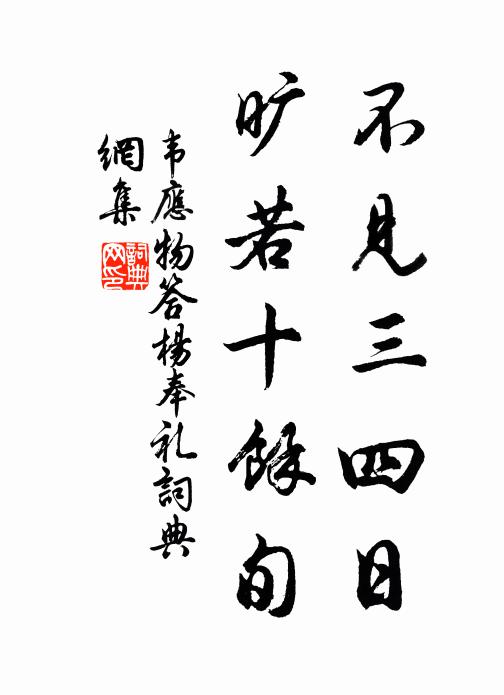 不見三四日
旷若十餘旬
韦應物答楊奉礼詞典
網集
詞典
网印